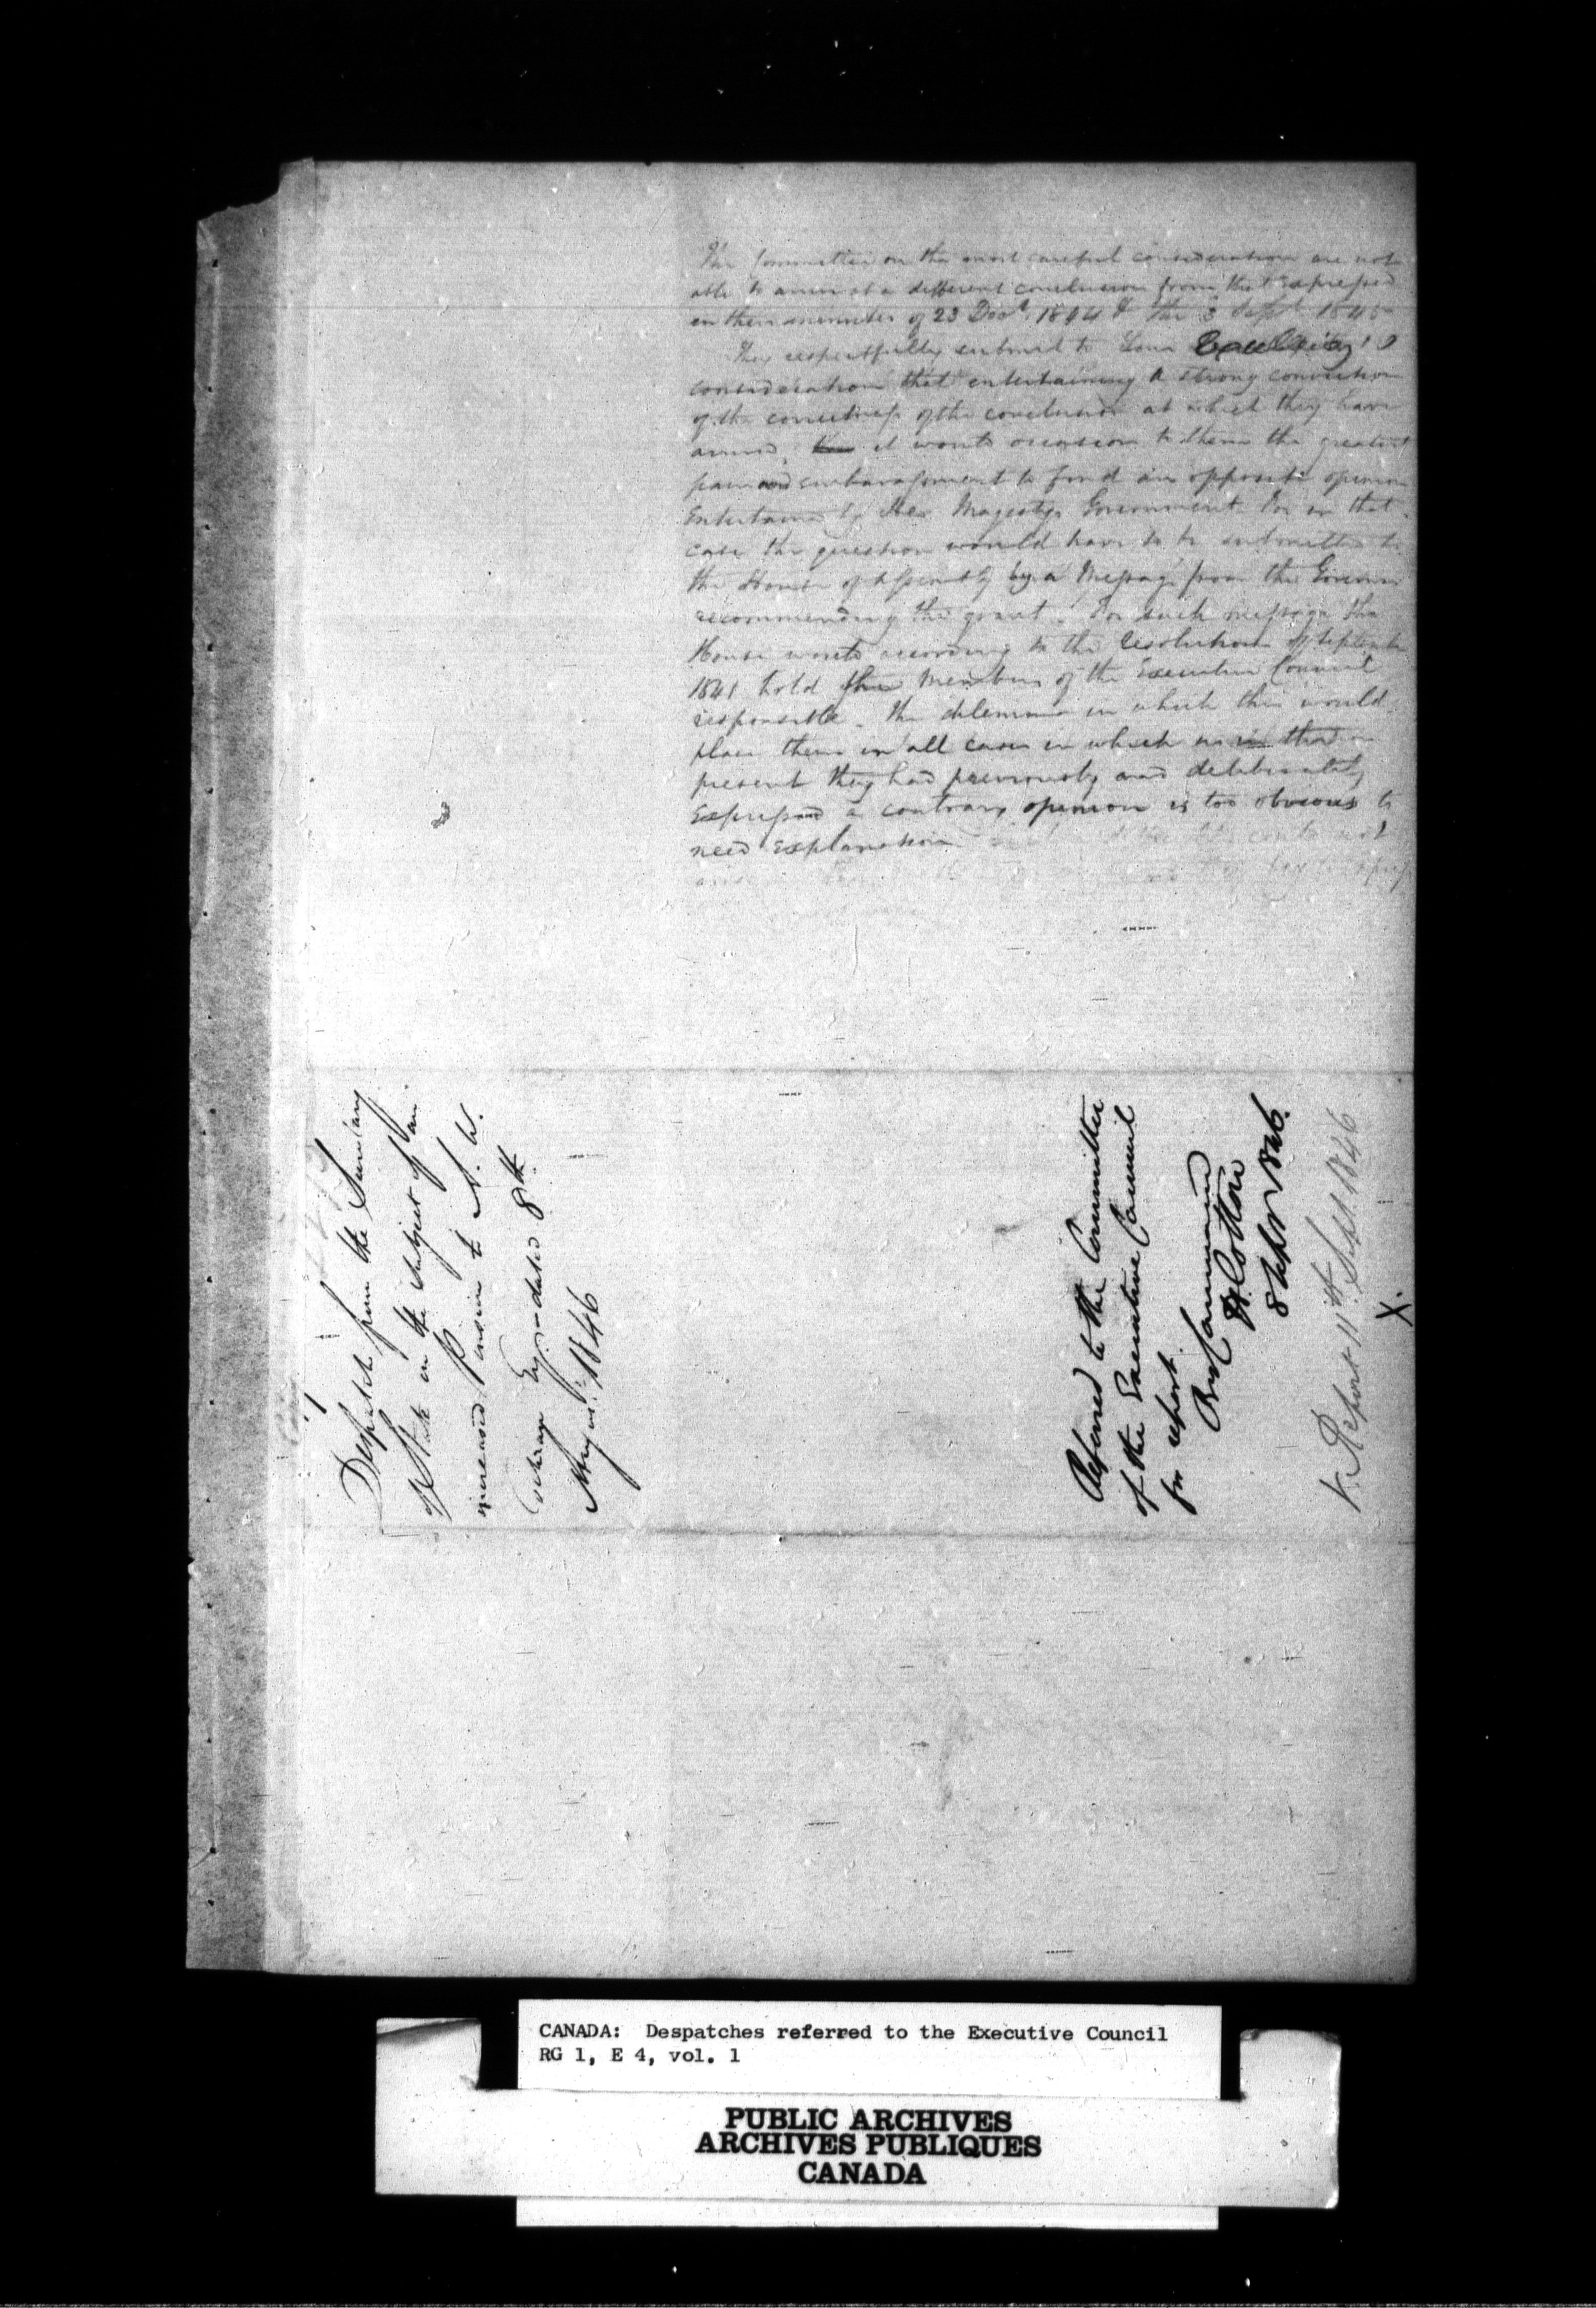 The Committee on the most careful consideration are not
able to arrive at a different conclusion from that expressed
in their minutes of 23 Decr. 1844 & the 3 Septr. 1845
They respectfully submit to Your Excellency's
consideration that entertaining a strong conviction
of the correctness of the conclusion at which they have
arrived, it would occasion to them the greatest
pain and embarassment to find an opposite opinion
entertained by Her Majestys Government. For in that
case the question would have to be submitted to
the House of Assembly by a Message from the Governor
recommending the grant. For such message the
House would according to the Resolution of September
1841 hold the Members of the Executive Council
responsible. The dilemma in which this would
place them in all cases in which as in that
present they had previously and deliberately
expressed a contrary opinion is too obvious to
need explanation
could not
Despatch from the Secretary
of State on the subject of an
increased Pension to A. W.
Cochran Esqr. - dated 8th
August 1846
Referred to the Committee
of the Executive Council
for report.
By Command
8 Septr 1846.
Report 11th Sept 1846
X.
CANADA: Despatches referred to the Executive Council
RG 1, E 4, vol. 1
PUBLIC ARCHIVES
ARCHIVES PUBLIQUES
CANADA